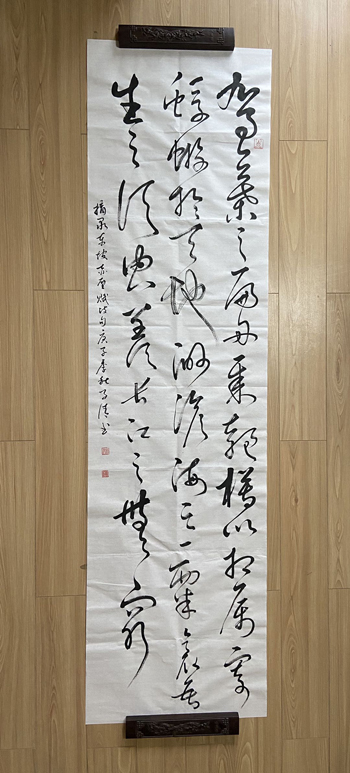 駕一葉之扁舟舉匏樽以相属寄
蜉蝣於天地渺滄海之一粟哀吾
生之須臾羨長江之無窮
摘录東坡赤壁賦诗句庚子季秋书